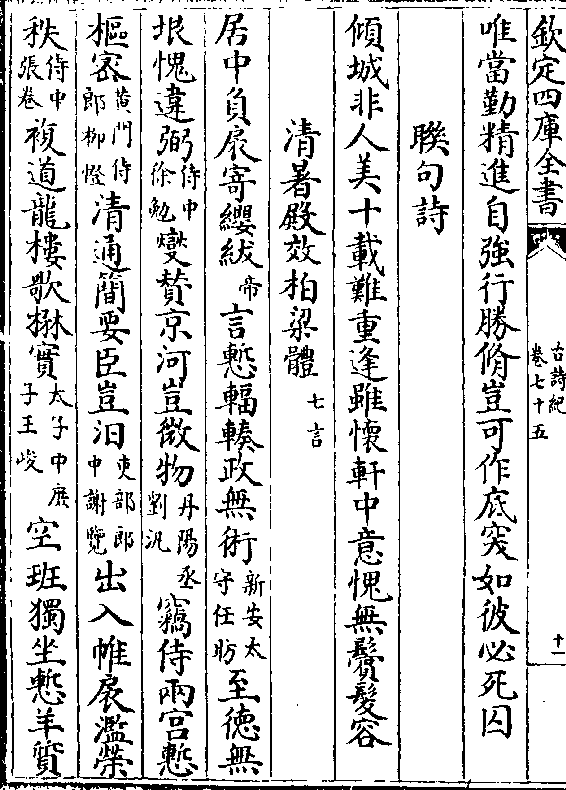 欽定四庫全書
古詩紀
卷七十五
十一
唯當勤精進自強行勝脩豈可作底突如彼必死囚
聯句詩
傾城非人美十載難重逢雖懷軒中意愧無鬒髮容
清暑殿效柏梁體七言
居中負扆寄纓紱帝言慙輻輳政無術新安太守任昉至德無
垠愧違弼侍中徐勉燮贊京河豈微物丹陽丞劉汎竊侍兩宮慙
樞密黄門侍郎柳憕清通簡要臣豈汩吏部郎中謝覽出入帷扆濫榮
秩侍中張卷複道龍樓歌楙實太子中庶子王峻空班獨坐慙羊質